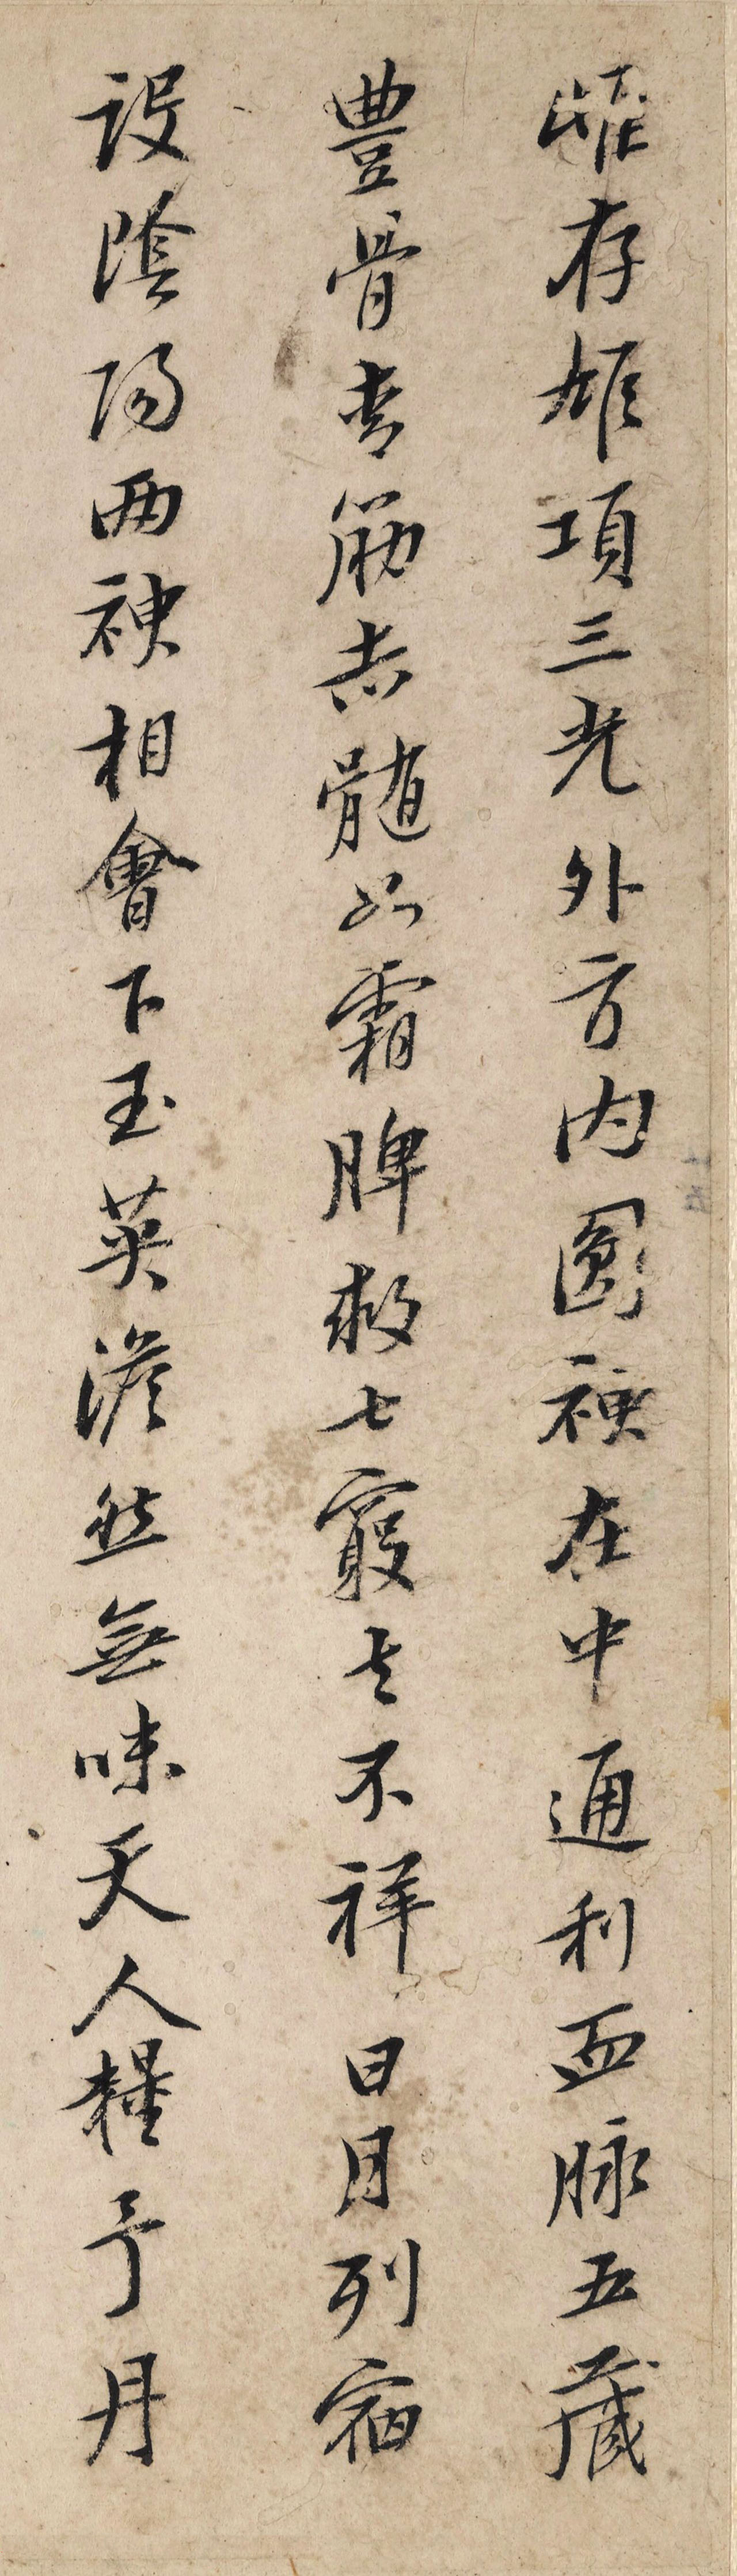 雌存雄項三光外方内圓神在中通利血脉五藏
豊骨青筋赤髄如霜脾救七竅去不祥日月列宿
設陰陽兩神相會下玉英澹然無味天人糧子丹